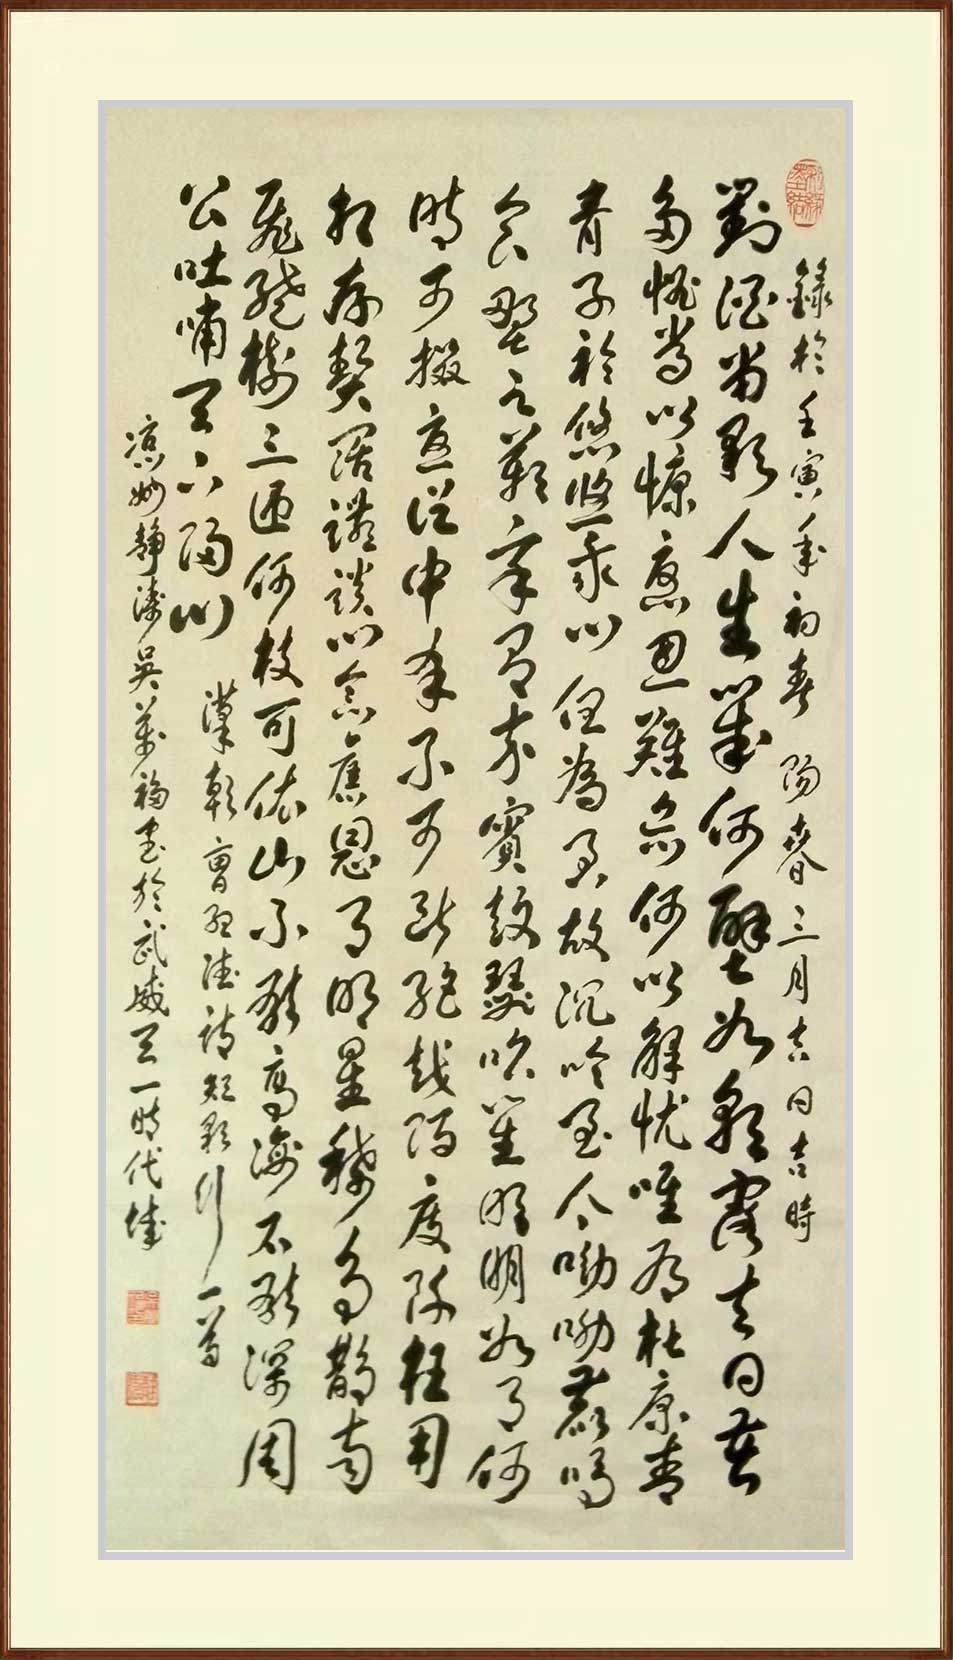 錄於壬寅年初春 陽春三月吉日吉時
對酒當歌人生幾何譬如朝露去日苦
多慨當以慷憂思難忘何以解憂唯有杜康青
青子衿悠悠我心但為君故沉吟至今呦呦鹿鳴
食野之蘋我有嘉賓鼓瑟吹笙明明如月何
時可掇憂從中來不可斷絕越陌度阡枉用
相存契闊讌談心念舊恩月明星稀烏鵲南
飛繞樹三匝何枝可依山不厭高海不厭深周
公吐哺天下歸心
漢朝曹孟德詩短歌行一首
涼妙靜濤吳萬福書於武威天一時代城